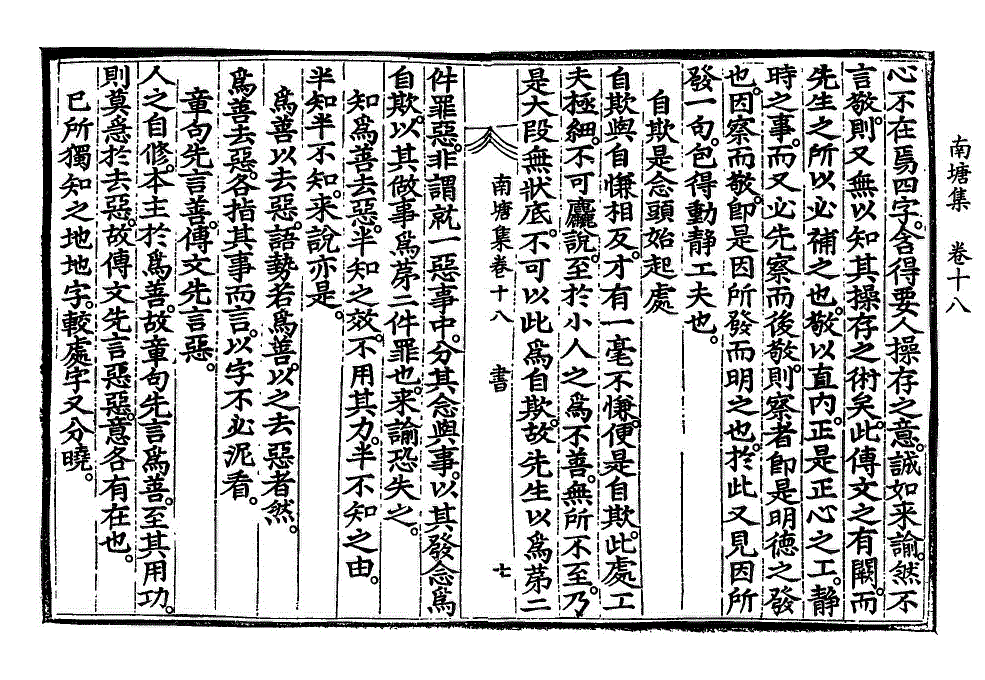 南塘集　卷十八
心不在焉四字。含得要人操存之意。誠如来諭。然不
言敬。則又無以知其操存之術矣。此傳文之有闕。而
先生之所以必補之也。敬以直内。正是正心之工。静
時之事。而又必先察而後敬。則察者卽是明德之發
也。因察而敬。卽是因所發而明之也。於此又見因所
發一句。包得動静工夫也。
自欺是念頭始起處
自欺與自慊相反。才有一毫不慊。便是自欺。此處工
夫極細。不可麤說。至於小人之爲不善。無所不至。乃
是大段無狀底。不可以此爲自欺。故先生以爲苐二
南塘集卷十八　書　七
件罪惡。非謂就一惡事中。分其念與事。以其發念爲
自欺。以其做事爲苐二件罪也。来諭恐失之。
知爲善去惡。半知之效。不用其力。半不知之由。
半知半不知。来說亦是。
爲善以去惡。語勢若爲善。以之去惡者然。
爲善去惡。各指其事而言。以字不必泥看。
章句先言善。傳文先言惡。
人之自修。本主於爲善。故章句先言爲善。至其用功。
則莫急於去惡。故傳文先言惡惡。意各有在也。
已所獨知之地地字。較處字又分曉。